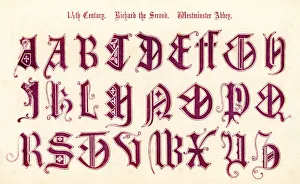 14th Century. Richard the Second. Westminster Abbey.
A B C D E F G H
I K L M N O P Q
R S T V W X Y Z